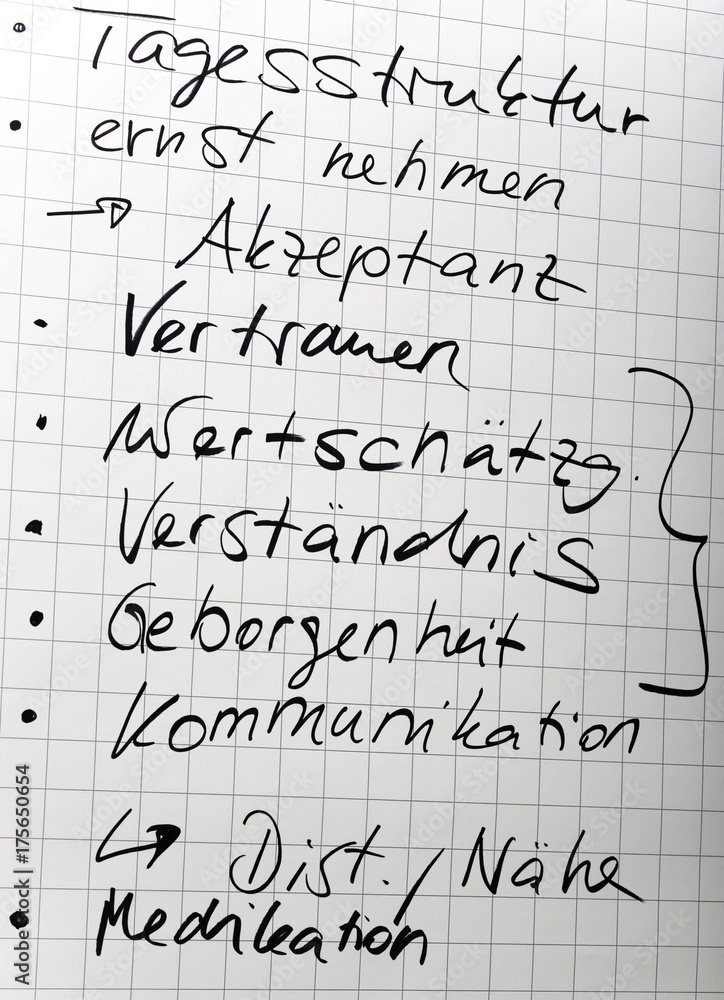 • Tagesstruktur
• ernst nehmen
→ Akzeptanz
• Vertrauen
• Wertschätzg.
• Verständnis
• Geborgenheit
• Kommunikation
↳ Dist. / Nähe
• Medikation
Adobe Stock | #175650654